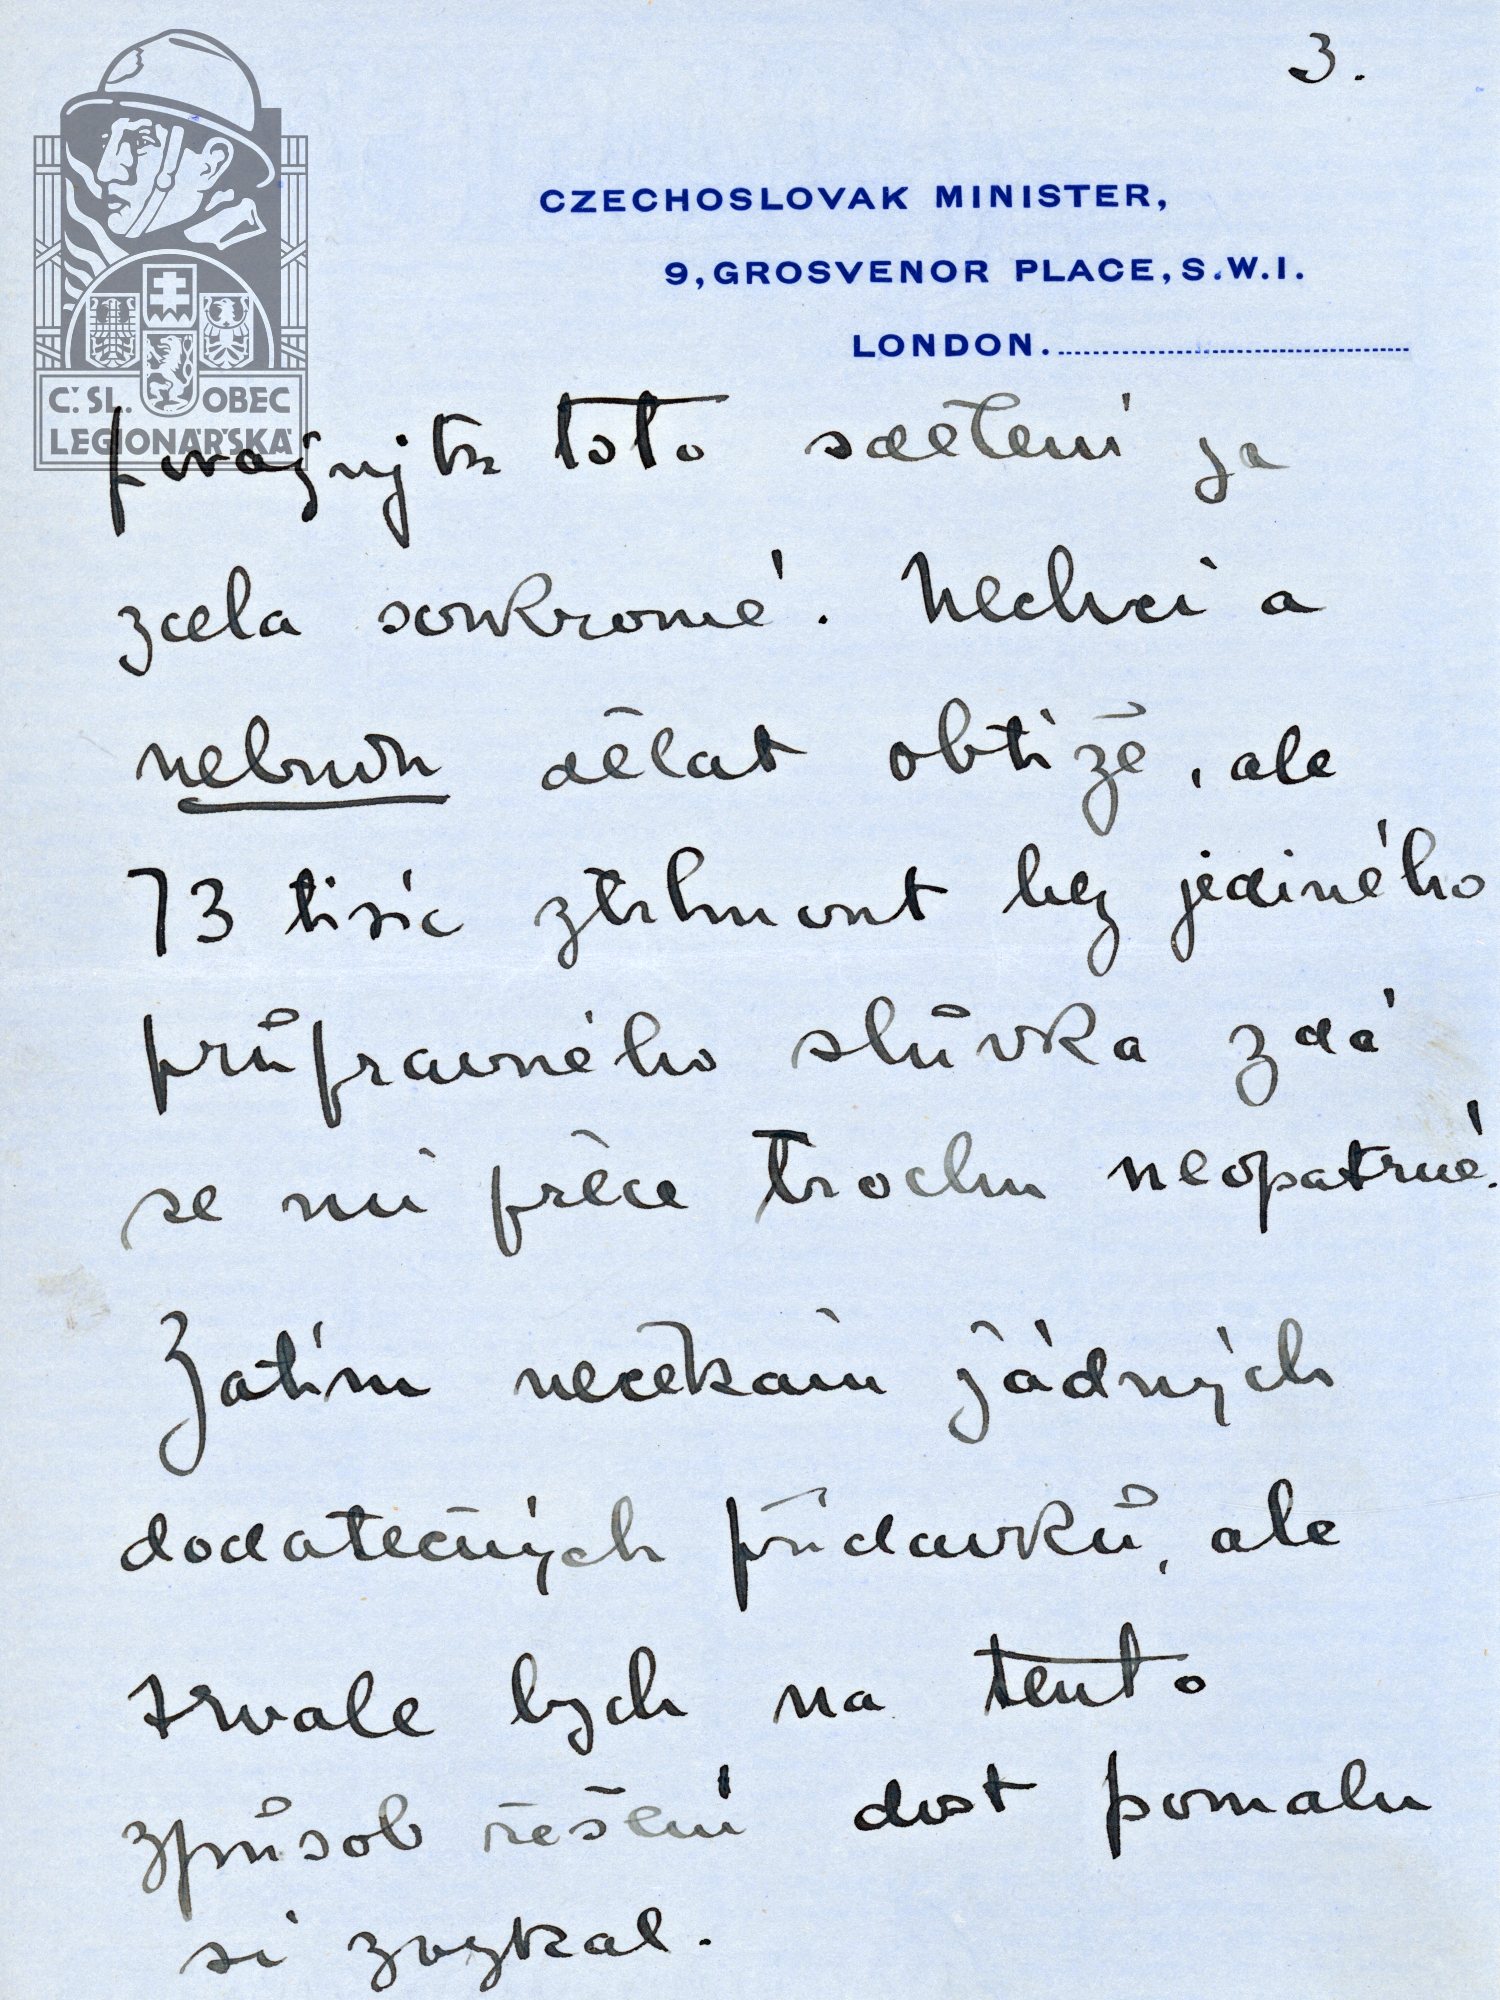 3.
CZECHOSLOVAK MINISTER,
9, GROSVENOR PLACE, S.W.1.
LONDON.
Č.SL. OBEC
LEGIONÁŘSKÁ
považujte toto sdělení za
zcela soukromé. Nechci a
nebudu dělat obtíže, ale
73 tisíc ztrhnout bez jediného
průpravného slůvka zdá
se mi přece trochu neopatrné.
Zatím nečekám žádných
dodatečných přídavků, ale
trvale bych na tento
způsob řešení dost pomalu
si zvykal.